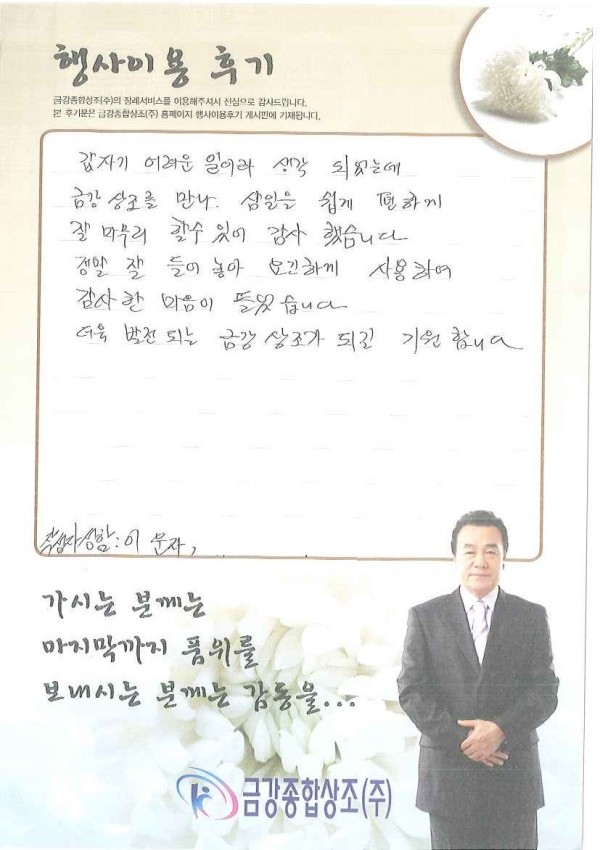 행사이용 후기
금강종합상조(주)의 장례서비스를 이용해주셔서 진심으로 감사드립니다.
본 후기문은 금강종합상조(주) 홈페이지 행사이용후기 게시판에 기재됩니다.
갑자기 어려운 일이라 생각 되었는데
금강 상조를 만나. 삼일을 쉽게 편하게
잘 마무리 할수 있어 감사 했습니다
정말 잘 들어 놓아 요긴하게 사용하여
감사한 마음이 들었습니다
더욱 발전 되는 금강 상조가 되길 기원 합니다
작성자성함: 이 문자,
가시는 분께는
마지막까지 품위를
보내시는 분께는 감동을...
금강종합상조(주)